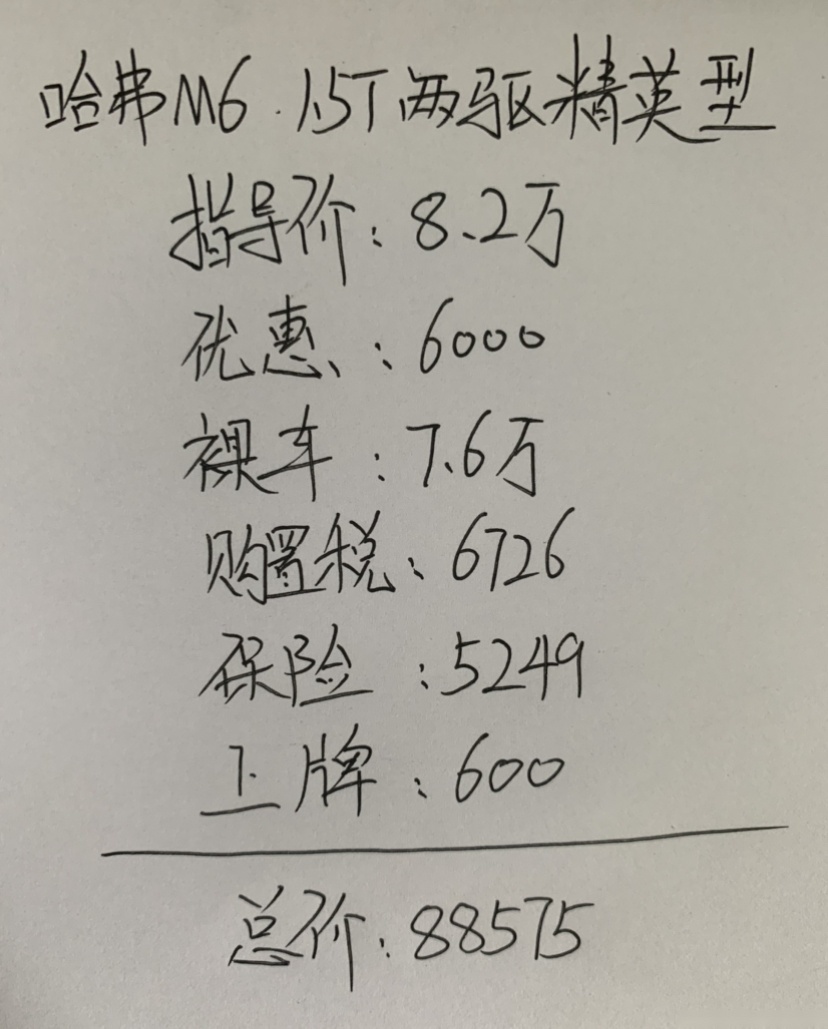 哈弗M6 1.5T两驱精英型
指导价:8.2万
优惠:6000
裸车:7.6万
购置税:6726
保险:5249
上牌:600
总价:88575